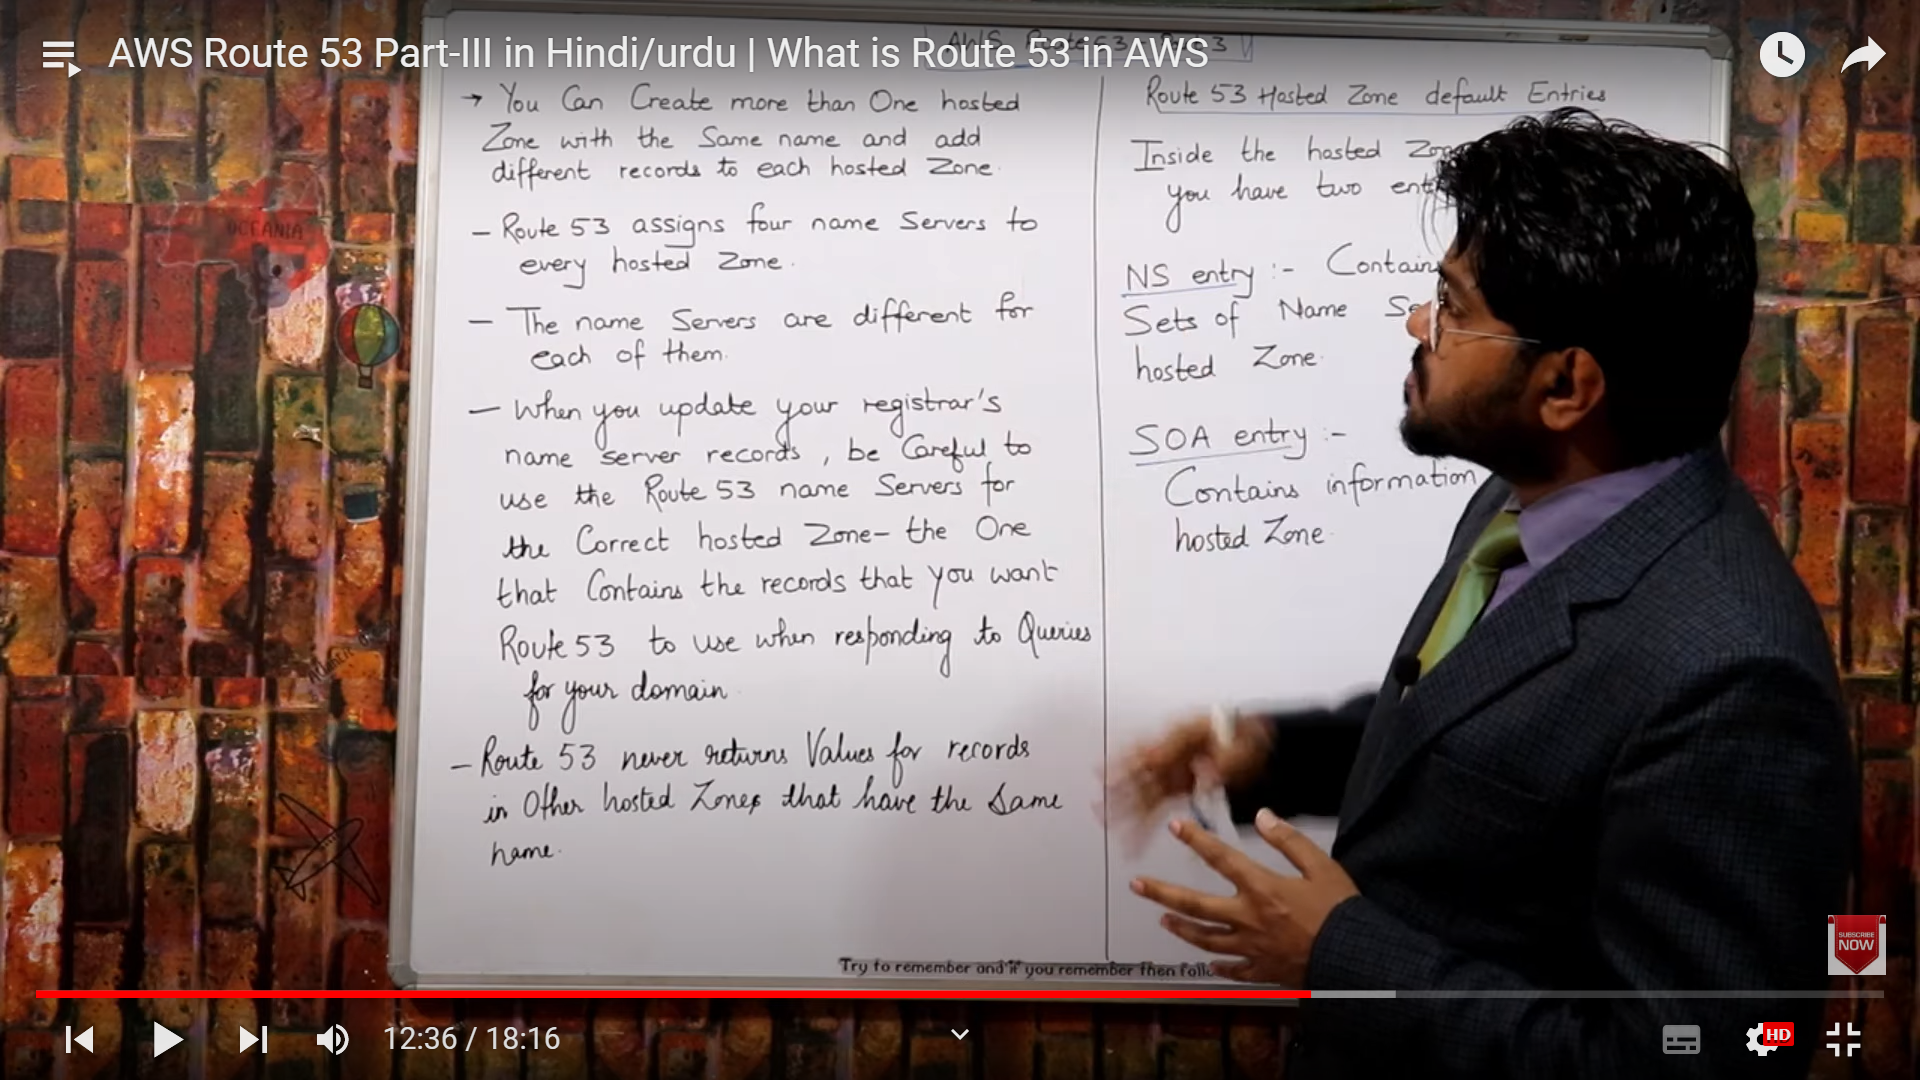 AWS Route 53 Part-III in Hindi/urdu | What is Route 53 in AWS
→ You Can Create more than One hosted
Zone with the Same name and add
different records to each hosted Zone.
– Route 53 assigns four name Servers to
every hosted Zone.
– The name Servers are different for
each of them.
– When you update your registrar's
name server records, be Careful to
use the Route 53 name Servers for
the Correct hosted Zone– the One
that Contains the records that you want
Route 53 to use when responding to Queries
for your domain.
– Route 53 never returns Values for records
in Other hosted Zones that have the Same
name.
Route 53 Hosted Zone default Entries
Inside the hosted
you have two
NS entry :-
Sets of Name
hosted Zone.
SOA entry :-
Contains information
hosted Zone.
OCEANIA
Try to remember and if you remember then
SUBSCRIBE
NOW
12:36 / 18:16
HD